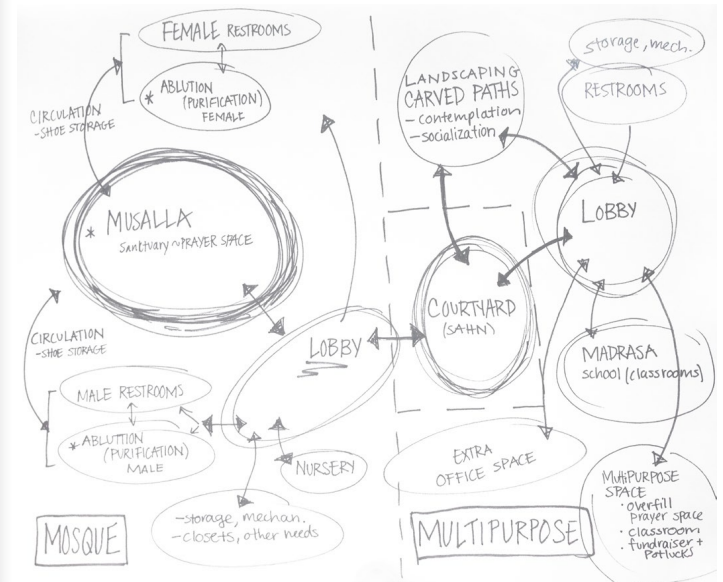 FEMALE RESTROOMS
* ABLUTION
(PURIFICATION)
FEMALE
CIRCULATION
-SHOE STORAGE
* MUSALLA
Sanctuary ~ PRAYER SPACE
CIRCULATION
-SHOE STORAGE
LOBBY
MALE RESTROOMS
* ABLUTTION
(PURIFICATION)
MALE
NURSERY
-storage, mechan.
-closets, other needs
MOSQUE
LANDSCAPING
CARVED PATHS
- contemplation
- socialization
storage, mech.
RESTROOMS
LOBBY
COURTYARD
(SAHN)
MADRASA
school (classrooms)
EXTRA
OFFICE SPACE
MULTIPURPOSE
SPACE
· overfill
prayer space
· classroom
· fundraiser +
Potlucks
MULTIPURPOSE